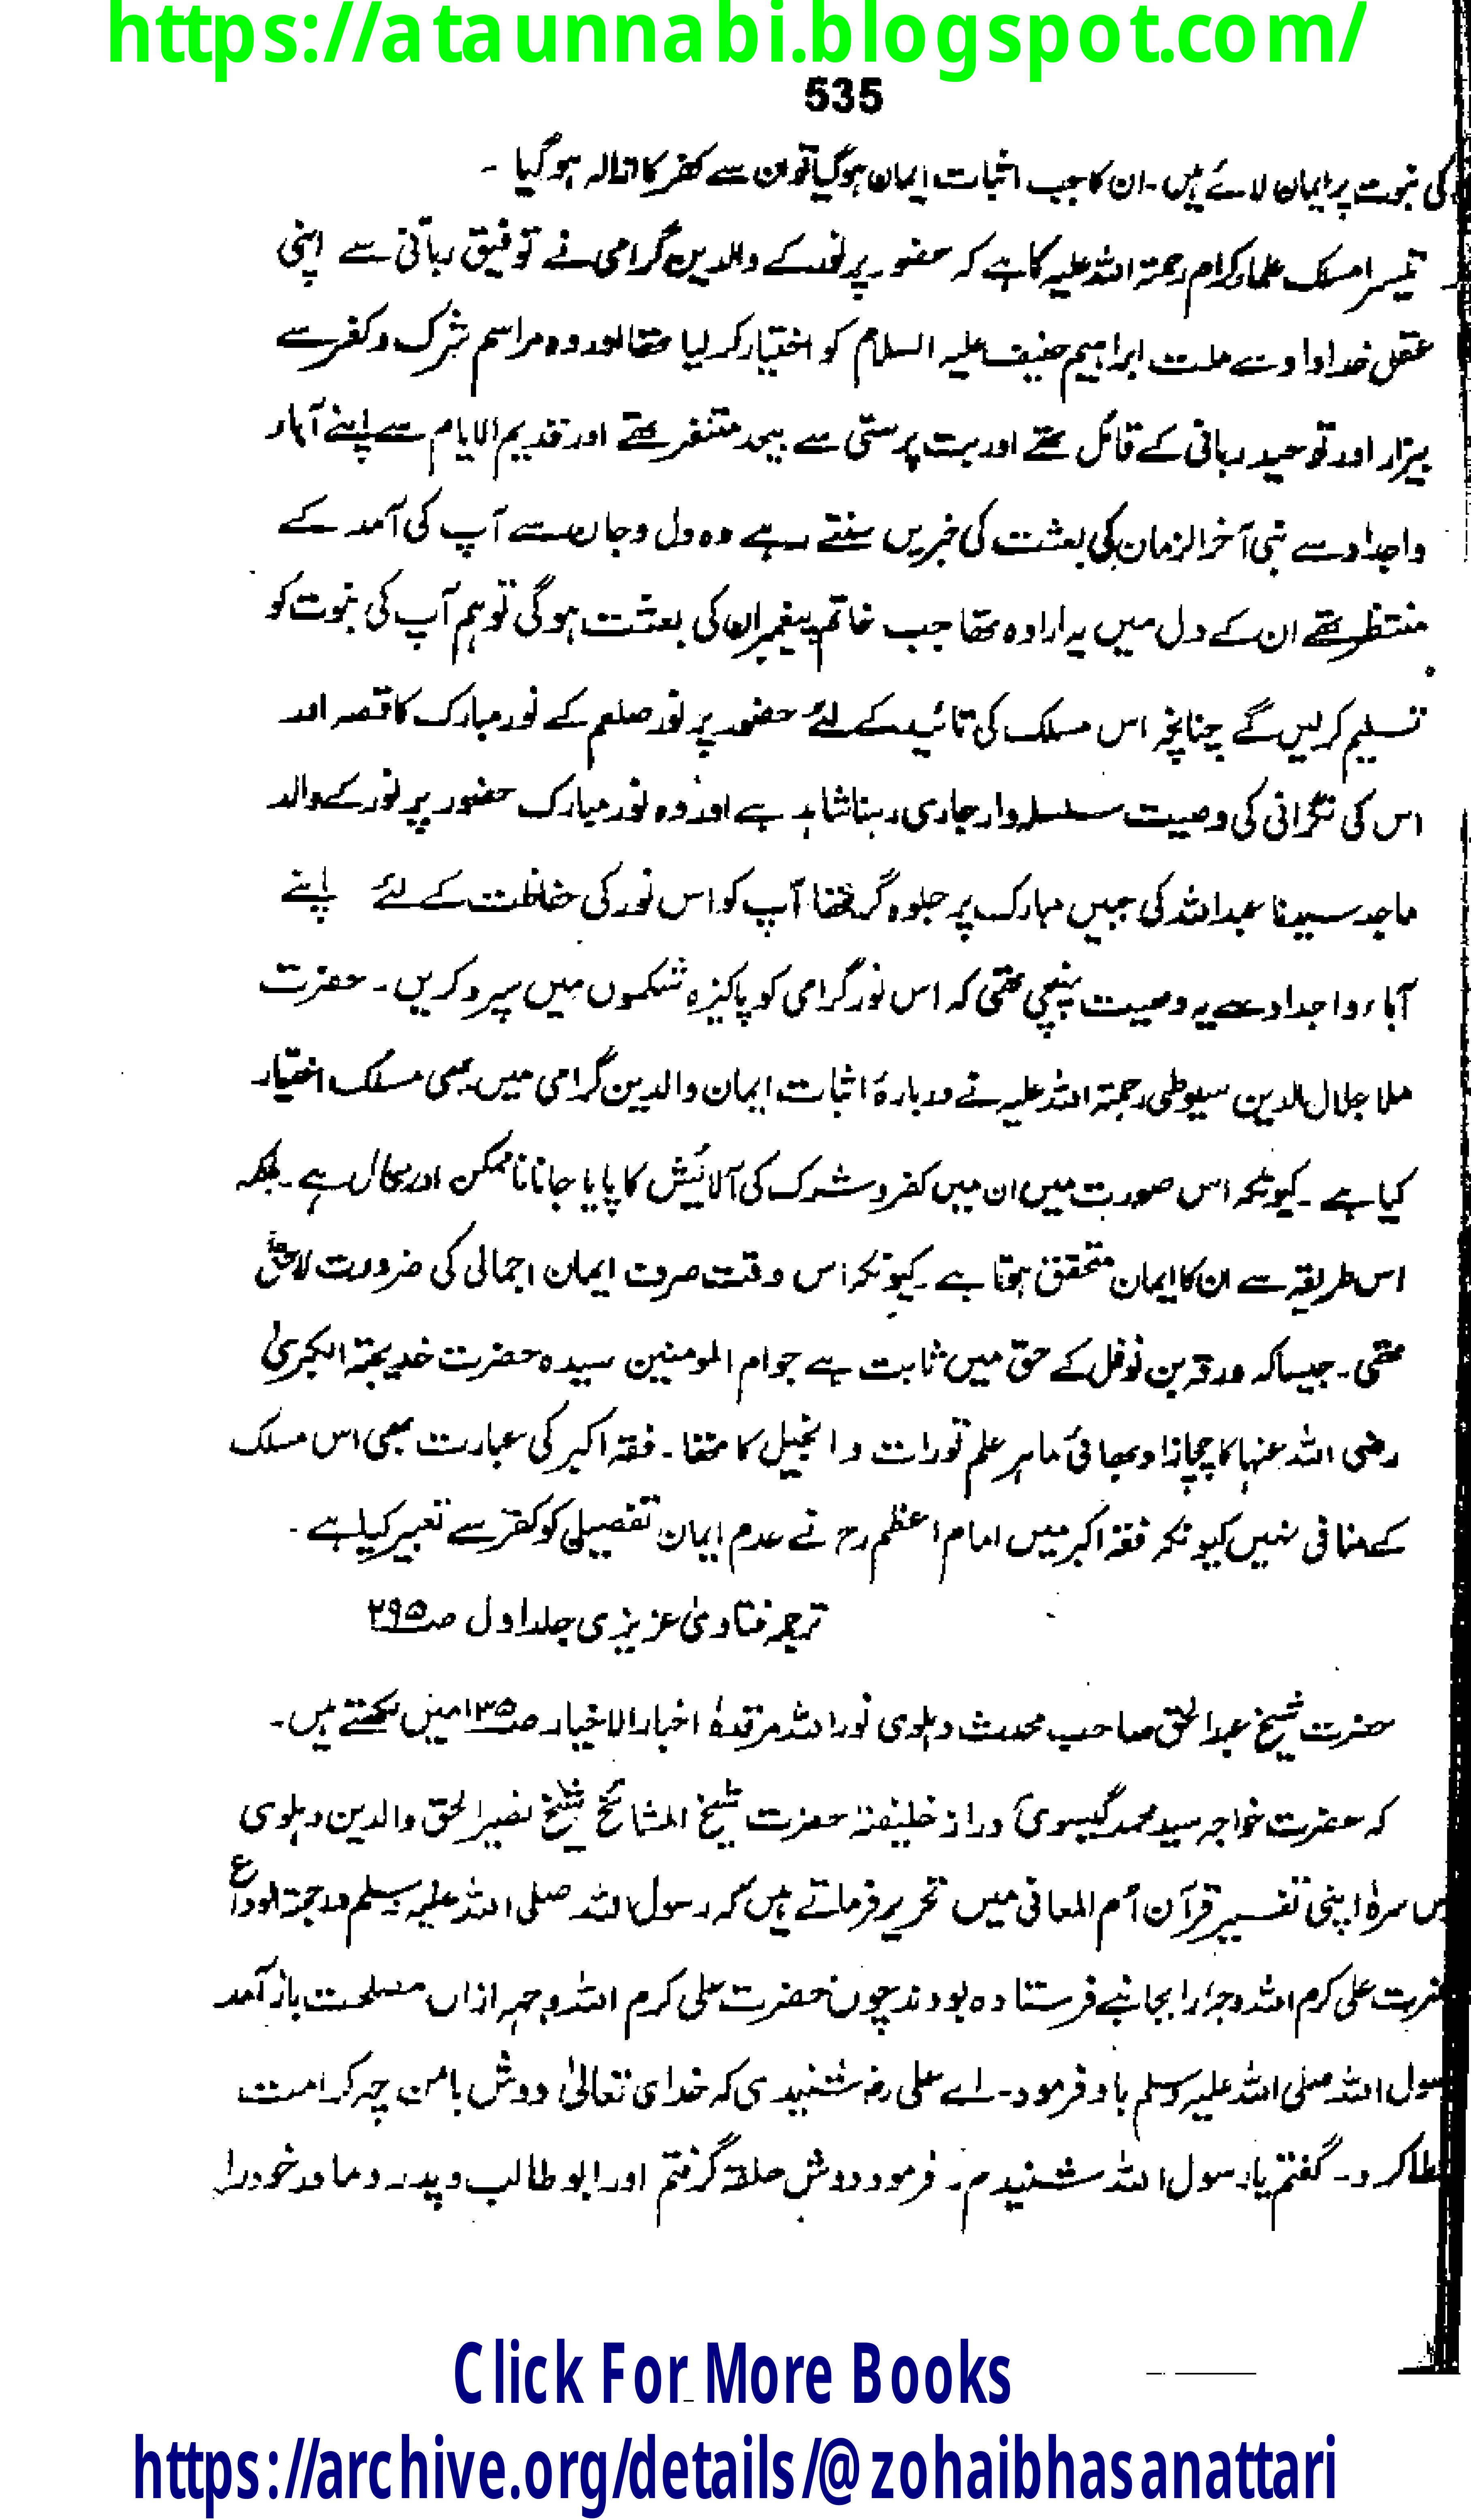 https://ataunnabi.blogspot.com/
535
کی نبوت پر ایمان لائے ہیں۔ ان کا جب اثبات ایمان ہوگیا تو ان سے کفر کا ازالہ ہوگیا ۔
تیسرا مسلک علماء کرام رحمۃ اللہ علیہ کا ہے کہ حضور پر نور کے والدین گرامی نے توفیق ربانی سے اپنی
عقل خداداد سے ملت ابراہیم حنیف علیہ السلام کو اختیار کر لیا تھا اور وہ مراسم شرک و کفر سے
بیزار اور توحید ربانی کے قائل تھے اور بت پرستی سے بیحد متنفر تھے اور قدیم الایام سے اپنے آباء
واجداد سے نبی آخر الزمان کی بعثت کی خبریں سنتے رہے وہ دل و جان سے آپ کی آمد کے
منتظر تھے ان کے دل میں یہ ارادہ تھا جب خاتم پیغمبران کی بعثت ہوگی تو ہم آپ کی نبوت کو
تسلیم کر لیں گے چنانچہ اس مسلک کی تائید کے لئے حضور پر نور صلعم کے نور مبارک کا قصہ اور
اس کی نگرانی کی وصیت سلسلہ وار جاری رہنا شاہد ہے اور وہ نور مبارک حضور پر نور کے والد
ماجد سیدنا عبداللہ کی جبیں مبارک پر جلوہ گر تھا آپ کو اس نور کی حفاظت کے لئے اپنے
آباء واجداد سے یہ وصیت پہنچی تھی کہ اس نور گرامی کو پاکیزہ شکموں میں سپرد کریں۔ حضرت
ملا جلال الدین سیوطی رحمۃ اللہ علیہ نے دربارۂ اثبات ایمان والدین گرامی میں یہی مسلک اختیار
کیا ہے ۔ کیونکہ اس صورت میں ان میں کفر و شرک کی آلائیش کا پایا جانا ناممکن اور محال ہے ۔ بلکہ
اس طریقہ سے ان کا ایمان متحقق ہوتا ہے ۔ کیونکہ اس وقت صرف ایمان اجمالی کی ضرورت لاحق
تھی ۔ جیسا کہ ورقہ بن نوفل کے حق میں ثابت ہے جو ام المومنین سیدہ حضرت خدیجۃ الکبریٰ
رضی اللہ عنہا کا چچازاد بھائی ماہر علم تورات و انجیل کا تھا ۔ فقہ اکبر کی عبارت بھی اس مسلک
کے منافی نہیں کیونکہ فقہ اکبر میں امام اعظم رح نے عدم ایمان تفصیلی کو کفر سے تعبیر کیا ہے ۔
ترجمہ فتاویٰ عزیزی جلد اول صـ ۲۹۵
حضرت شیخ عبد الحق صاحب محدث دہلوی نور اللہ مرقدہٗ اخبار الاخیار صـ ۱۳۵ میں لکھتے ہیں۔
کہ حضرت خواجہ سید محمد گیسوی دراز خلیفہ حضرت شیخ المشائخ شیخ نصیر الحق والدین دہلوی
س سرہٗ اپنی تفسیر قرآن اُم المعانی میں تحریر فرماتے ہیں کہ رسول اللہ صلی اللہ علیہ وسلم در حجۃ الوداع
حضرت علی کرم اللہ وجہٗ را بجانبے فرستادہ بودند چوں حضرت علی کرم اللہ وجہہ ازاں مصلحت باز آمد
رسول اللہ صلی اللہ علیہ وسلم باو فرمود۔ اے علی رض شنیدی کہ خدای تعالیٰ دوش بامن چہ کرامت
عطا کرد ۔ گفتم یا رسول اللہ شنیدم ۔ فرمود دوش حلقہ گرفتم اور ابو طالب و پدر و مادر خود را
Click For More Books
https://archive.org/details/@zohaibhasanattari